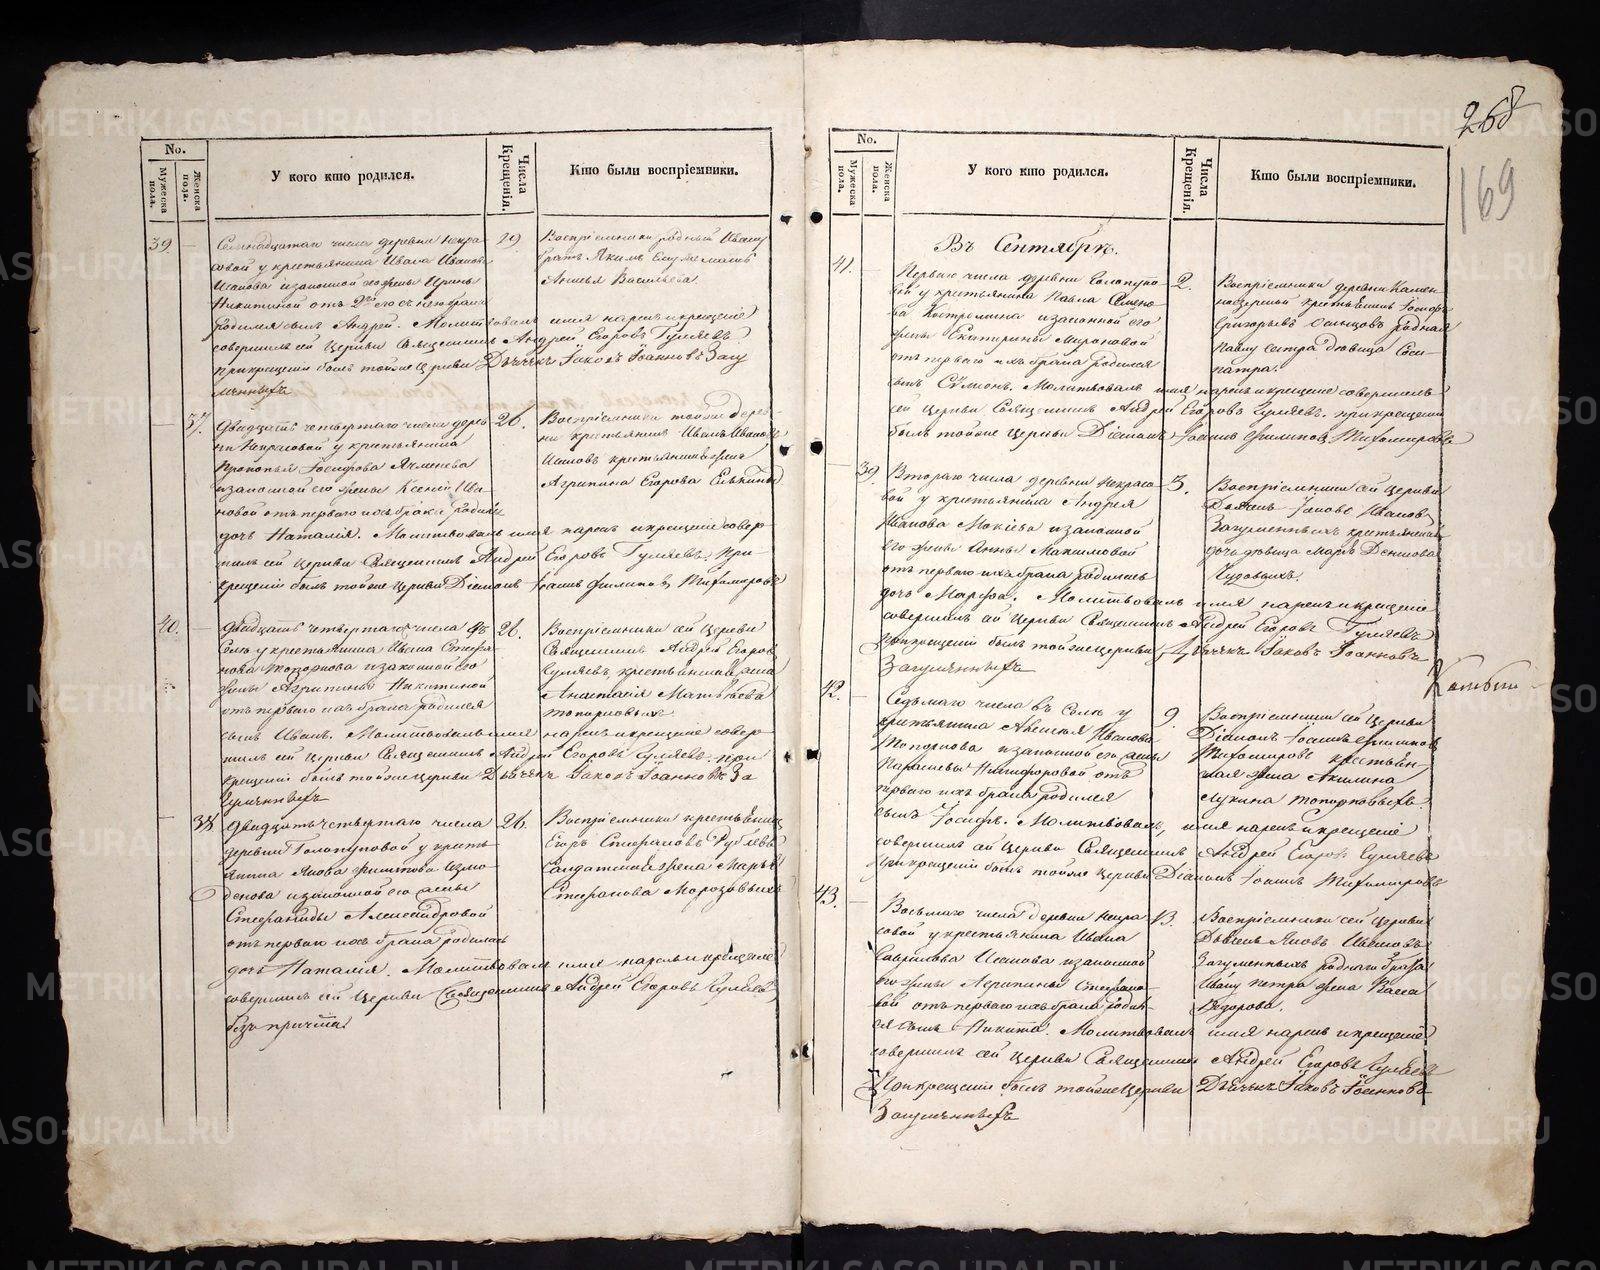 268
169
No.
Мужеска пола.
Женска пола.
У кого кто родился.
Числа Крещенія.
Кто были воспріемники.
39.
Семнадцатаго числа деревни Некра-
совой у крестьянина Ивана Иванова
Исакова и законной его жены Ирины
Никитиной отъ 2го его съ нею брака
родился сынъ Андрей. Молитвовалъ имя нарекъ и крещеніе
совершилъ сей Церкви Священникъ Андрей Егоровъ Гуляевъ
при крещеніи былъ тойже Церкви Дьячекъ Іаковъ Іоанновъ Загу
менныхъ
19
Воспріемники родный Ивану
братъ Якимъ
Анисья Васильева
37.
Двадцать четвертаго числа дерев-
ни Некрасовой у крестьянина
Прокопья Іосифова Ячменева
и законной его жены Ксеніи Ива-
новой отъ перваго ихъ брака родилась
дочь Наталія. Молитвовалъ имя нарекъ и крещеніе совер-
шилъ сей Церкви Священникъ Андрей Егоровъ Гуляевъ при
крещеніи былъ тойже Церкви Діаконъ Іоаннъ Филиповъ Тихомировъ
26.
Воспріемники тойже дерев-
ни крестьянинъ Иванъ Ивановъ
Исаковъ крестьянская жена
Агрипина Егорова
40.
Двадцать четвертаго числа въ
Селѣ у крестьянина Ивана Стефа-
нова Топоркова и законной его
жены Агрипины Никитиной
отъ перваго ихъ брака родился
сынъ Иванъ. Молитвовалъ имя нарекъ и крещеніе совер-
шилъ сей Церкви Священникъ Андрей Егоровъ Гуляевъ при
крещеніи былъ тойже Церкви Дьячекъ Іаковъ Іоанновъ За
гуменныхъ
26.
Воспріемники сей Церкви
Священникъ Андрей Егоровъ
Гуляевъ, крестьянская жена
Анастасія Матвѣева
Топорковыхъ.
38
Двадцать четвертаго числа
деревни Голопуповой у кресть-
янина Якова Филитова
и законной его жены
Стефаниды Александровой
отъ перваго ихъ брака родилась
дочь Наталія. Молитвовалъ имя нарекъ и крещеніе
совершилъ сей Церкви Священникъ Андрей Егоровъ Гуляевъ
безъ причта.
26.
Воспріемники крестьянинъ
Егоръ Стефановъ Рублевъ
Солдатская жена Марья
Стефанова Морозовыхъ
No.
Мужеска пола.
Женска пола.
У кого кто родился.
Числа Крещенія.
Кто были воспріемники.
Въ Сентябрѣ.
41.
Перваго числа деревни Голопупо-
вой у крестьянина Павла Семено-
ва Костромина и законной его
жены Екатерины Мироновой
отъ перваго ихъ брака родился
сынъ Сѵмеонъ. Молитвовалъ имя нарекъ и крещеніе совершилъ
сей Церкви Священникъ Андрей Егоровъ Гуляевъ. при крещеніи
былъ тойже Церкви Діаконъ Іоаннъ Филиповъ Тихомировъ
2.
Воспріемники деревни Камен-
ноозерской крестьянинъ Іосифъ
Григорьевъ родная
Павлу сестра дѣвица Соси-
патра.
39.
Втораго числа деревни Некрасо-
вой у крестьянина Андрея
Иванова Мокѣева и законной
его жены Анны Макимовой
отъ перваго ихъ брака родилась
дочь Марфа. Молитвовалъ имя нарекъ и крещеніе
совершилъ сей Церкви Священникъ Андрей Егоровъ Гуляевъ
при крещеніи былъ тойже Церкви Дьячекъ Іаковъ Іоанновъ
Загуменныхъ
3.
Воспріемники сей Церкви
Дьячекъ Іаковъ Ивановъ
Загуменныхъ крестьянская
дочь дѣвица Марья Денисова
Чудовыхъ.
42.
Седьмаго числа въ Селѣ у
крестьянина Алексѣя Иванова
Топоркова и законной его жены
Параскевы Никифоровой отъ
перваго ихъ брака родился
сынъ Іосифъ. Молитвовалъ, имя нарекъ и крещеніе
совершилъ сей Церкви Священникъ Андрей Егоровъ Гуляевъ
при крещеніи былъ тойже Церкви Діаконъ Іоаннъ Тихомировъ
9.
Воспріемники сей Церкви
Діаконъ Іоаннъ Филиповъ
Тихомировъ крестьян-
ская жена Акилина
Лукина Топорковыхъ.
43.
Восьмаго числа деревни Некра-
совой у крестьянина Ивана
Гаврилова Исакова и законной
его жены Агрипины Стефано-
вой отъ перваго ихъ брака родил-
ся сынъ Никита. Молитвовалъ имя нарекъ и крещеніе
совершилъ сей Церкви Священникъ Андрей Егоровъ Гуляевъ
При крещеніи былъ тойже Церкви Дьячекъ Іаковъ Іоанновъ
Загуменныхъ
13.
Воспріемники сей Церкви
Дьячекъ Яковъ Ивановъ
Загуменныхъ роднаго брата
Ивану Петра жена Васса
Ѳедорова.
METRIKI.GASO-URAL.RU